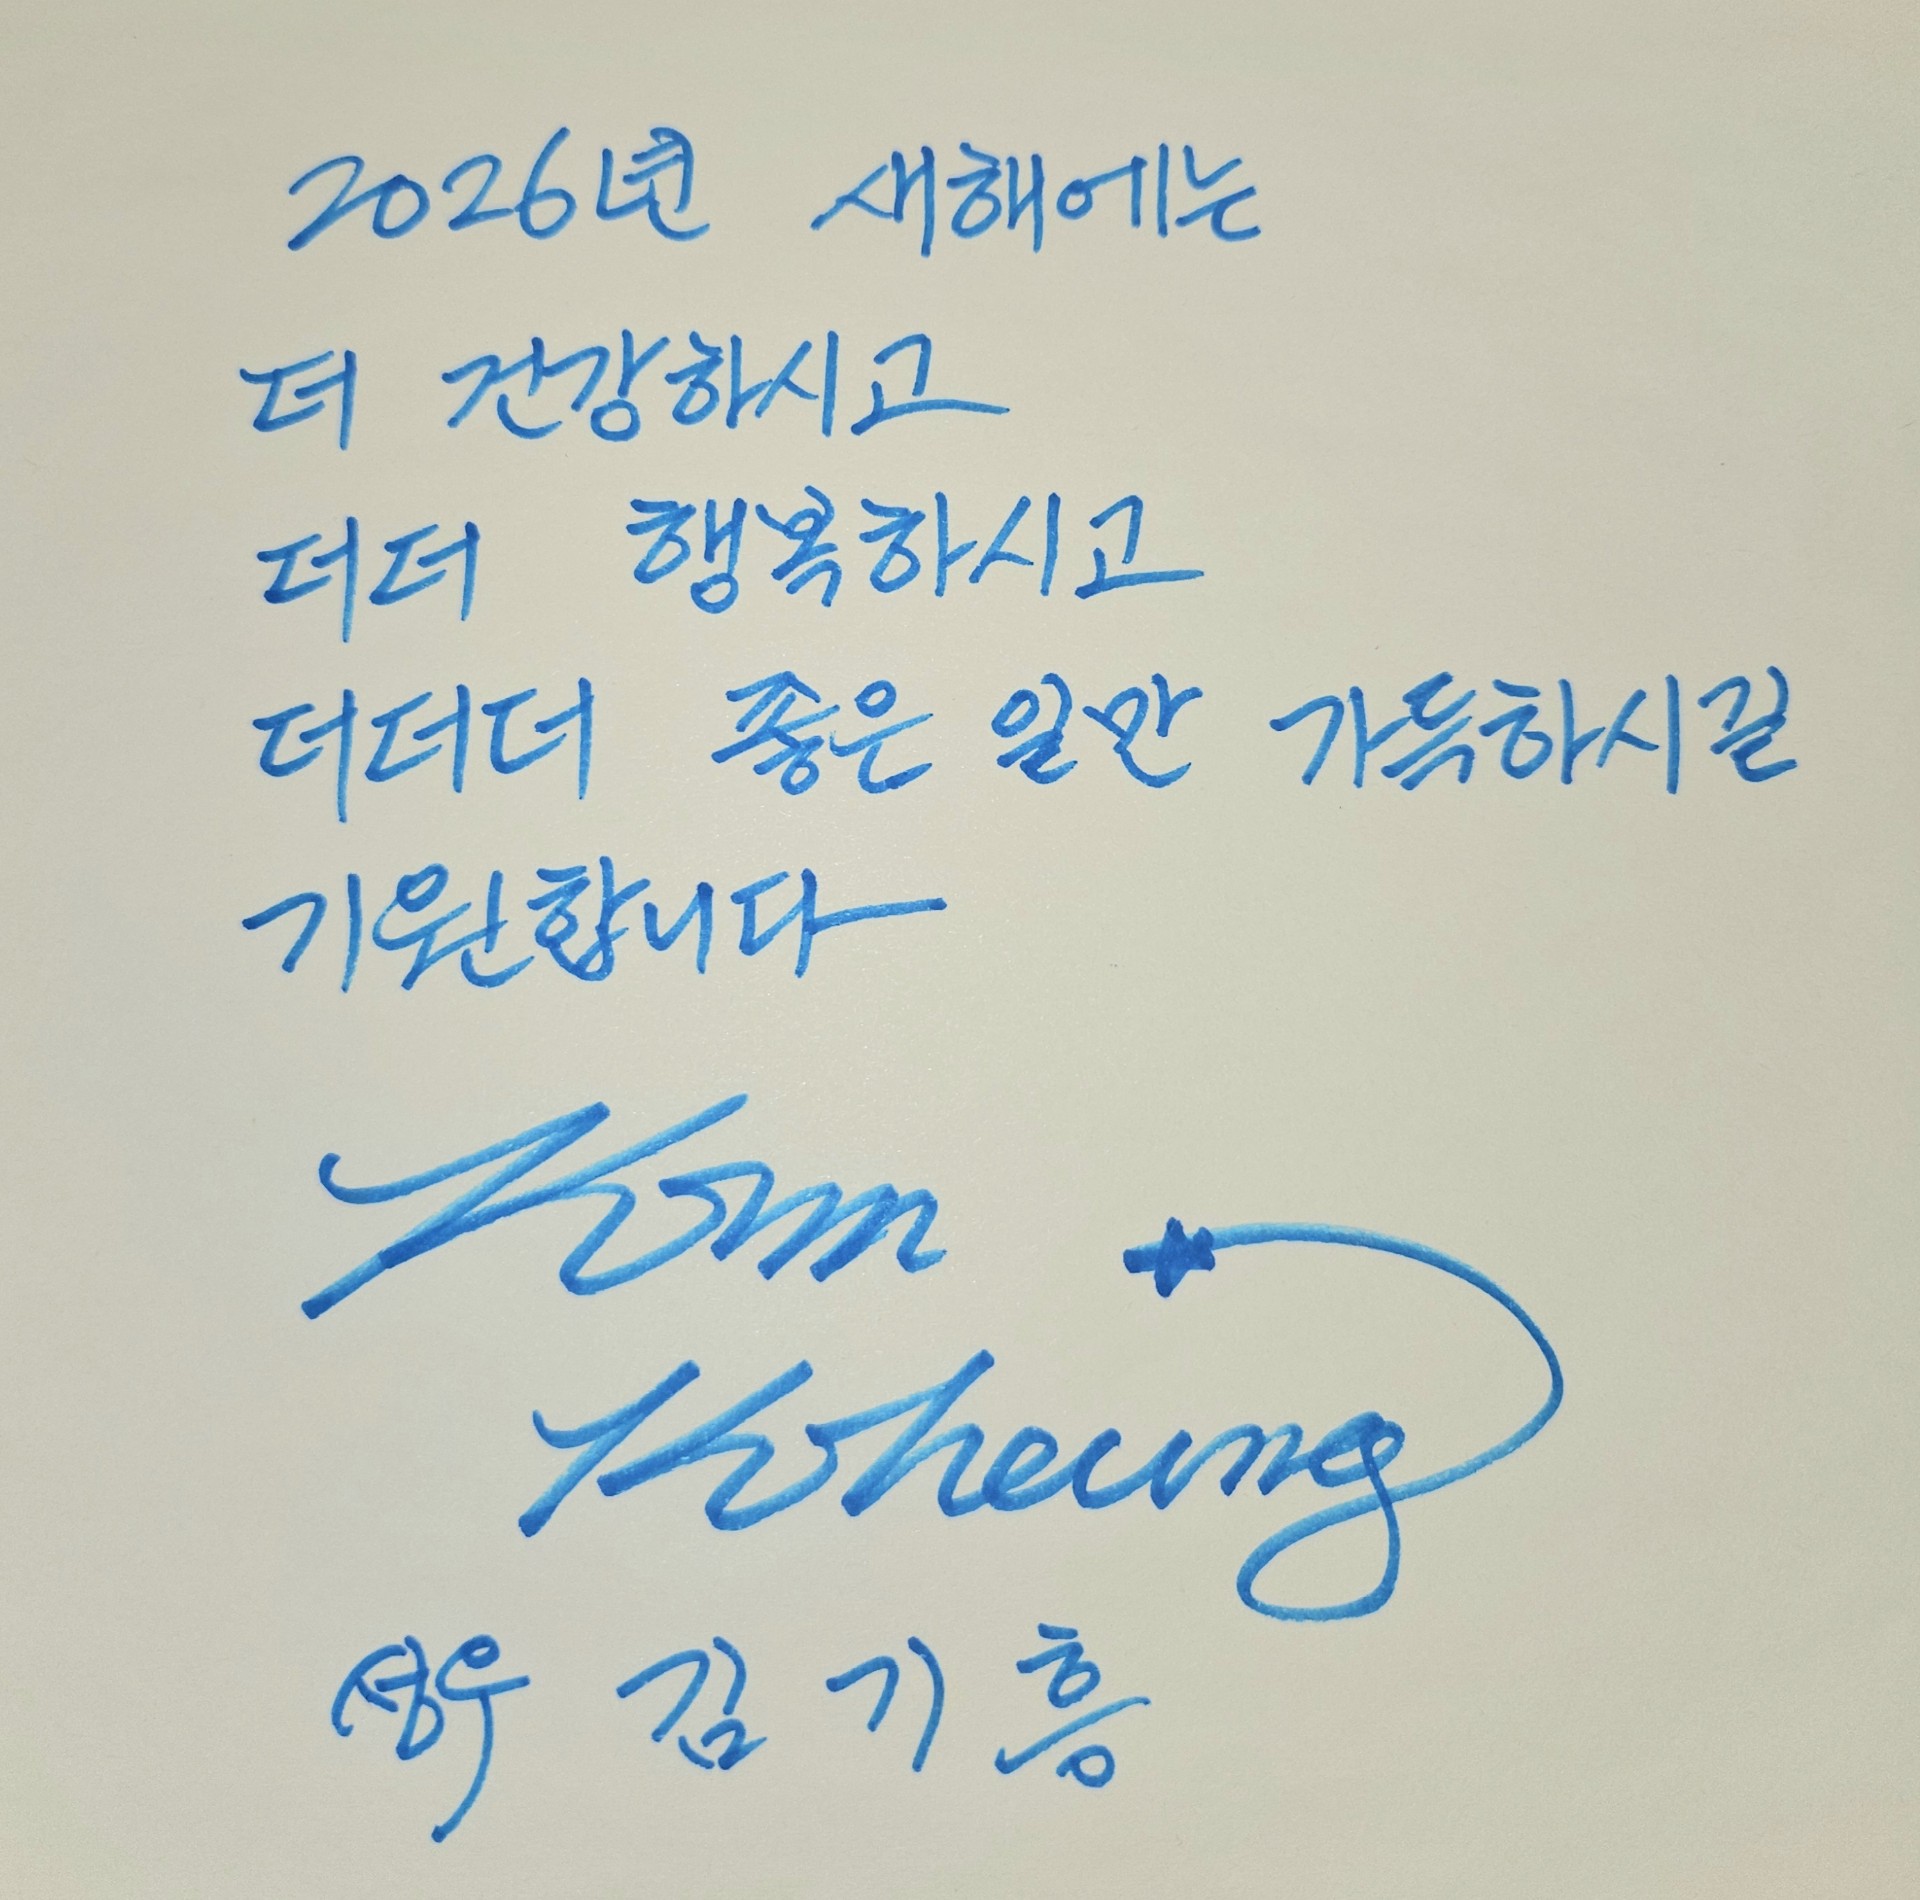 2026년 새해에는
더 건강하시고
더더 행복하시고
더더더 좋은 일만 가득하시길
기원합니다
Kim
Kiheung
성우 김기흥